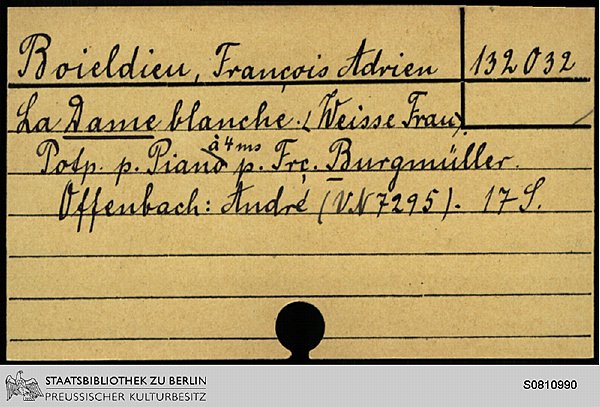 Boieldieu, François Adrien 132032
La Dame blanche. (Weisse Frau).
à 4ms
Potp. p. Piano p. Frç. Burgmüller.
Offenbach: André (V.N 7295). 17 S.
STAATSBIBLIOTHEK ZU BERLIN
PREUSSISCHER KULTURBESITZ
S0810990